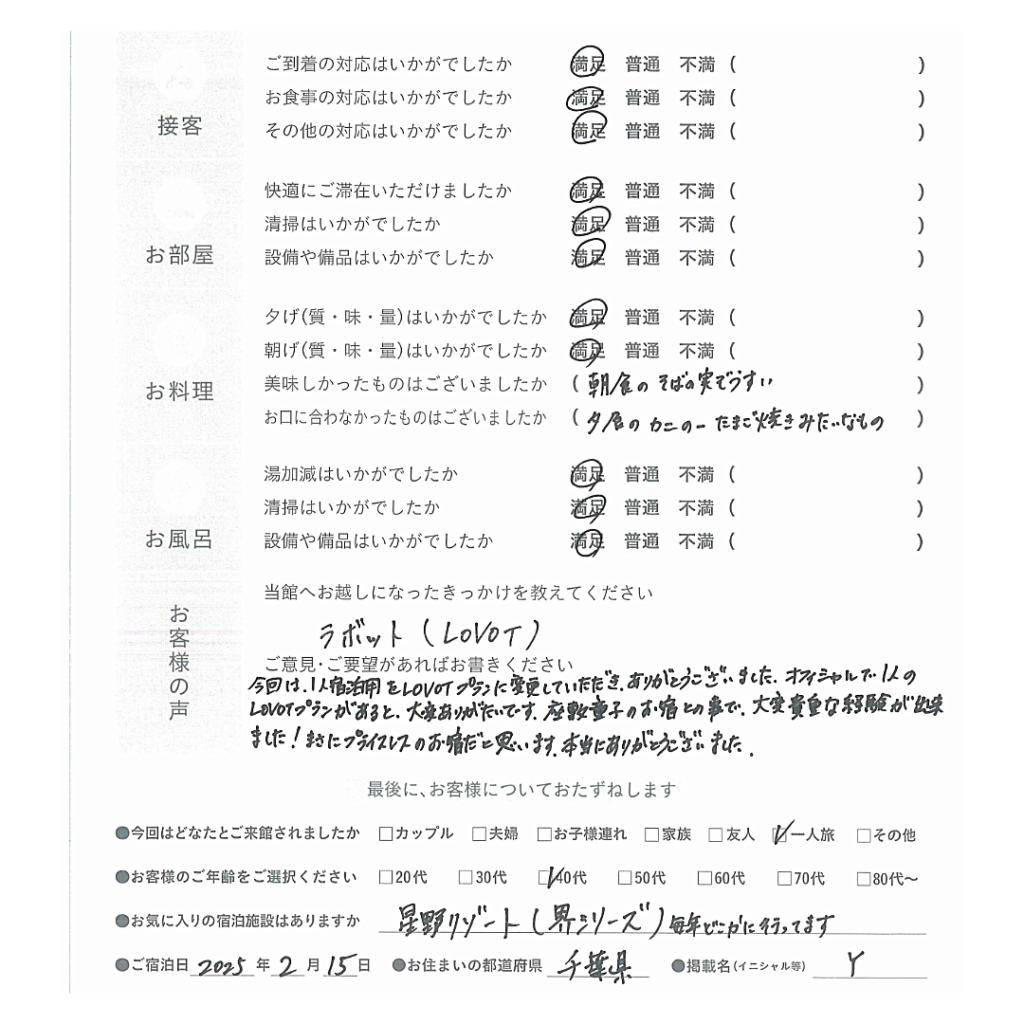 ご到着の対応はいかがでしたか 満足 普通 不満 ( )
お食事の対応はいかがでしたか 満足 普通 不満 ( )
接客
その他の対応はいかがでしたか 満足 普通 不満 ( )
快適にご滞在いただけましたか 満足 普通 不満 ( )
清掃はいかがでしたか 満足 普通 不満 ( )
お部屋
設備や備品はいかがでしたか 満足 普通 不満 ( )
夕げ(質・味・量)はいかがでしたか 満足 普通 不満 ( )
朝げ(質・味・量)はいかがでしたか 満足 普通 不満 ( )
お料理
美味しかったものはございましたか ( 朝食のそばの実ぞうすい )
お口に合わなかったものはございましたか ( 夕食のカニのーたまご焼きみたいなもの )
湯加減はいかがでしたか 満足 普通 不満 ( )
清掃はいかがでしたか 満足 普通 不満 ( )
お風呂
設備や備品はいかがでしたか 満足 普通 不満 ( )
お客様の声
当館へお越しになったきっかけを教えてください
ラボット(LOVOT)
ご意見・ご要望があればお書きください
今回は、1人宿泊用をLOVOTプランに変更していただき、ありがとうございました。オフィシャルで1人の
LOVOTプランがあると、大変ありがたいです。座敷童子のお宿との事で、大変貴重な経験が出来
ました!まさにプライスレスのお宿だと思います。本当にありがとうございました。
最後に、お客様についておたずねします
●今回はどなたとご来館されましたか □カップル □夫婦 □お子様連れ □家族 □友人 ☑一人旅 □その他
●お客様のご年齢をご選択ください □20代 □30代 ☑40代 □50代 □60代 □70代 □80代〜
●お気に入りの宿泊施設はありますか 星野リゾート(界シリーズ)毎年どこかに行ってます
●ご宿泊日 2025 年 2 月 15 日 ●お住まいの都道府県 千葉県 ●掲載名(イニシャル等) Y